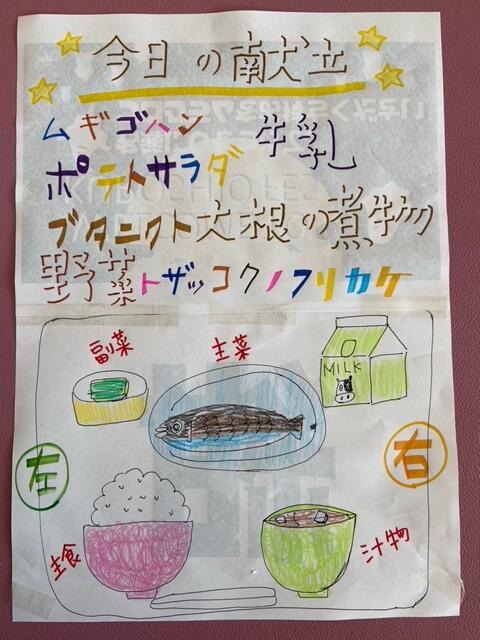 今日の献立
ムギゴハン 牛乳
ポテトサラダ
ブタニクト大根の煮物
野菜トザッコクノフリカケ
副菜 主菜
MILK
左 右
主食 汁物